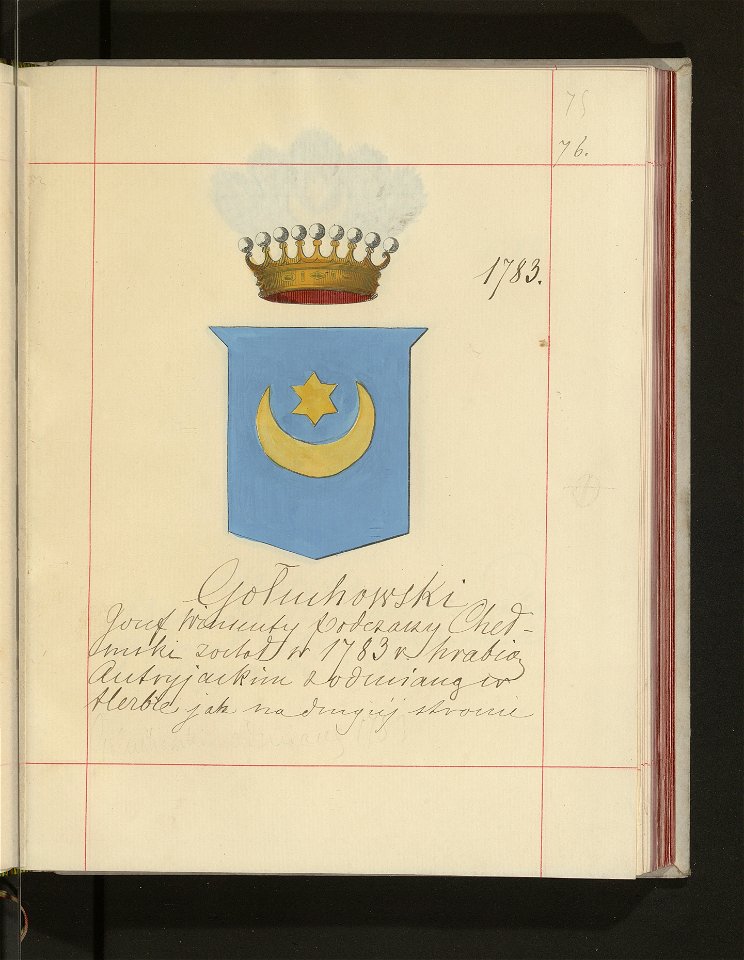 75
76.
1783.
Gołuchowski
Józef Wincenty Podczaszy Cheł-
mski został w 1783 r hrabią
Austryjackim z odmianą w
Herbie jak na drugiej stronie